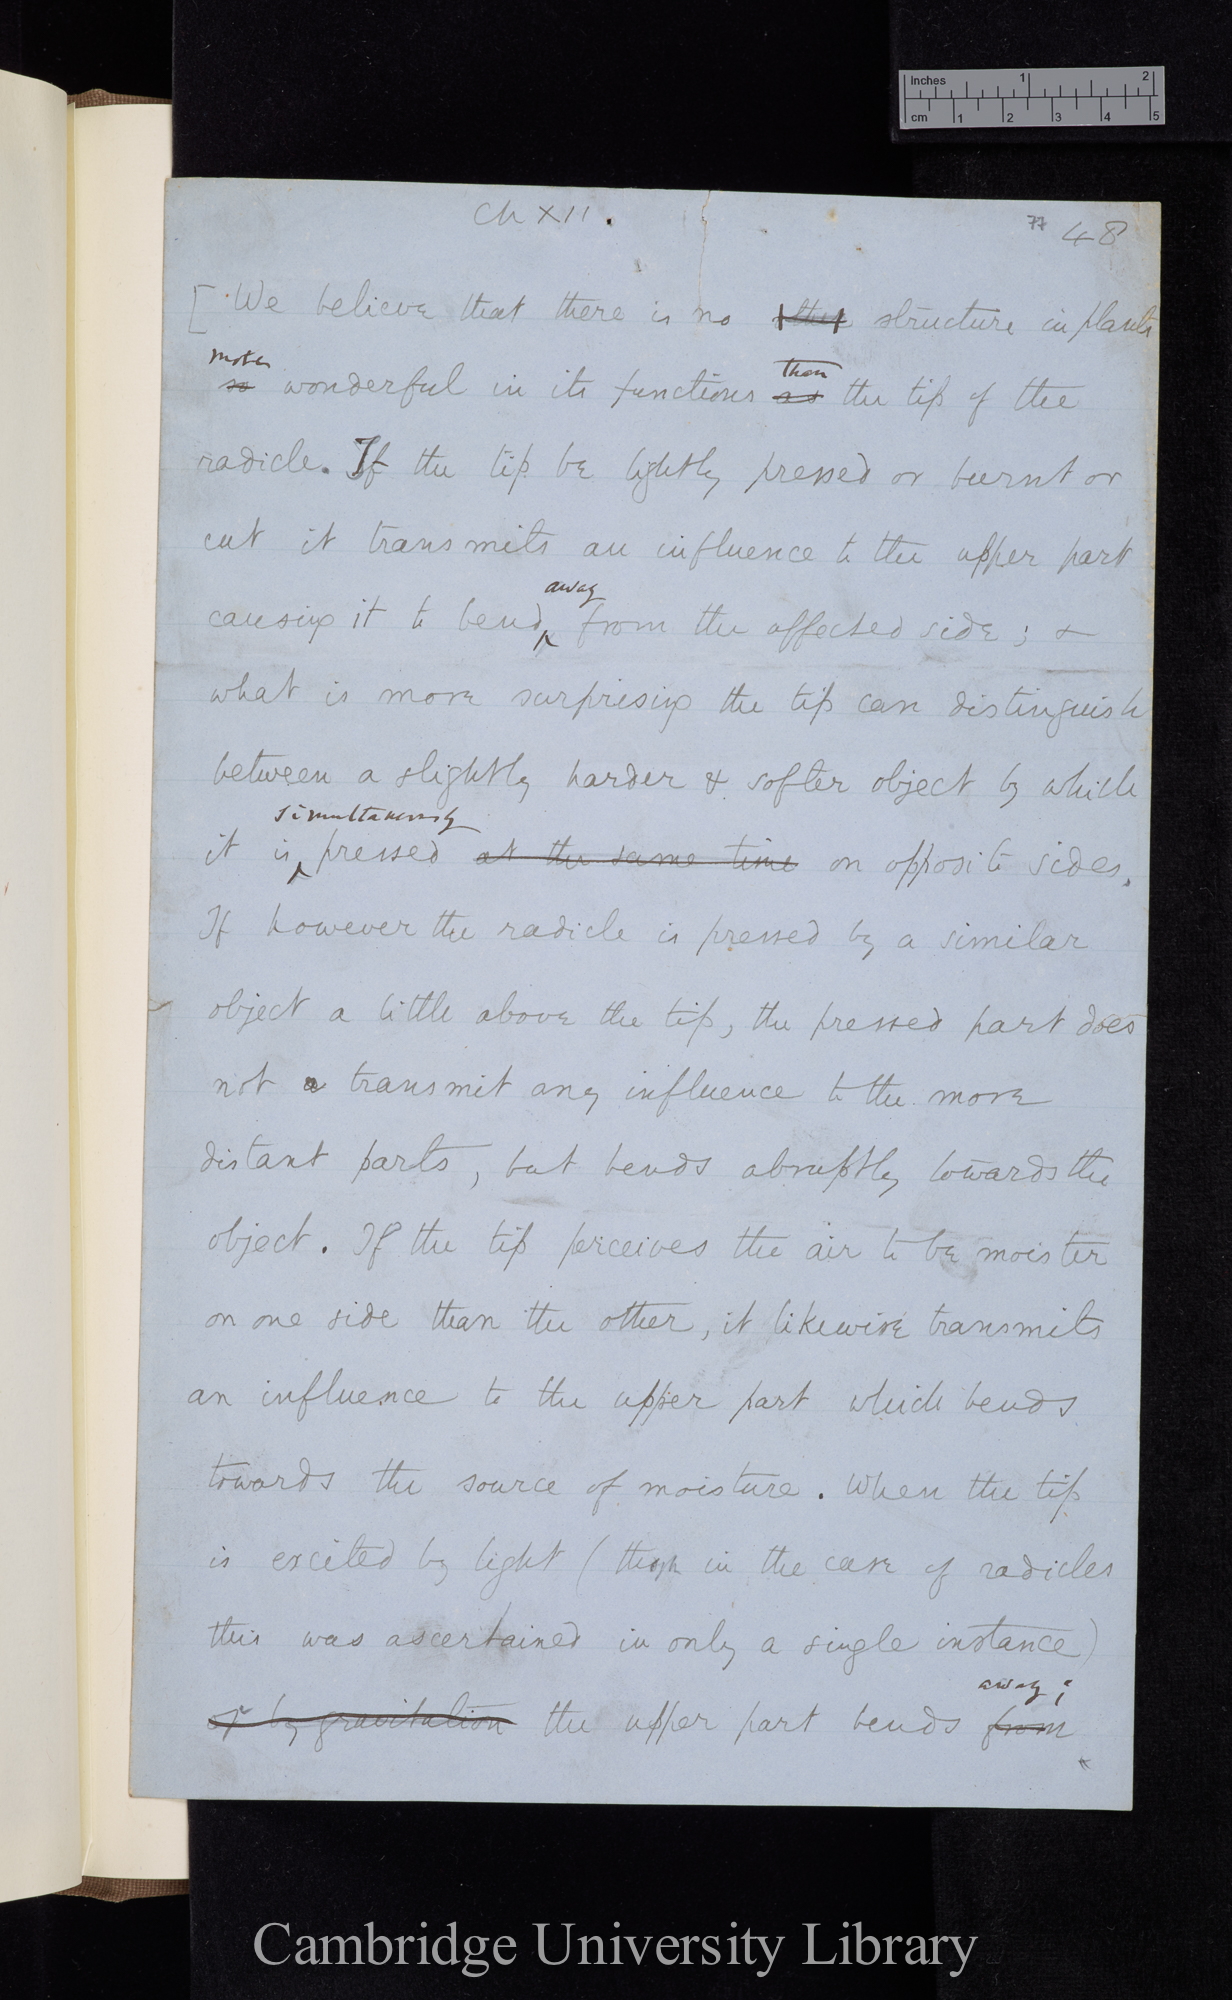 Inches 1 2
cm 1 2 3 4 5
Ch XII.
77 48
[We believe that there is no other structure in plants
more than
so wonderful in its functions as the tip of the
radicle. If the tip be lightly pressed or burnt or
cut it transmits an influence to the upper part
away
causing it to bend from the affected side; &
what is more surprising the tip can distinguish
between a slightly harder & softer object by which
simultaneously
it is pressed at the same time on opposite sides.
If however the radicle is pressed by a similar
object a little above the tip, the pressed part does
not a transmit any influence to the more
distant parts, but bends abruptly towards the
object. If the tip perceives the air to be moister
on one side than the other, it likewise transmits
an influence to the upper part which bends
towards the source of moisture. When the tip
is excited by light (though in the case of radicles
this was ascertained in only a single instance)
away;
or by gravitation the upper part bends from
Cambridge University Library